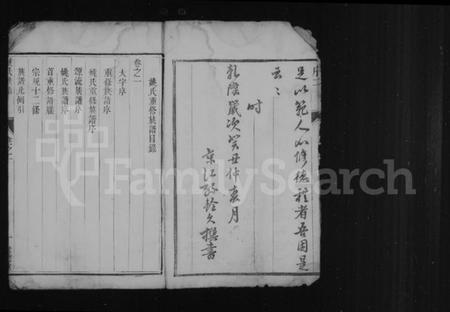 足以範人心修德程者吾因是
云々
時
乾隆歲次癸丑仲春月
京江
撰書
姚氏重修族譜目錄
卷之一
大宗序
重修族譜序
姚氏重修族譜序
源流族譜序
姚氏族譜序
首重修譜序
宗規十二條
族譜凡例引
FamilySearch